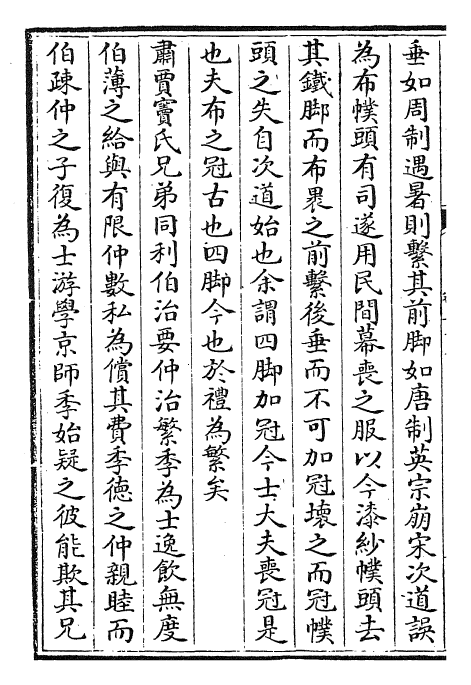 垂如周制遇暑則繫其前脚如唐制英宗崩宋次道誤
為布幞頭有司遂用民間幕喪之服以今漆紗幞頭去
其鐵脚而布裹之前繫後垂而不可加冠壞之而冠幞
頭之失自次道始也余謂四脚加冠今士大夫喪冠是
也夫布之冠古也四脚今也於禮為繁矣
肅賈竇氏兄弟同利伯治要仲治繁季為士逸飲無度
伯薄之給與有限仲數私為償其費季德之仲親睦而
伯疎仲之子復為士游學京師季始疑之彼能欺其兄